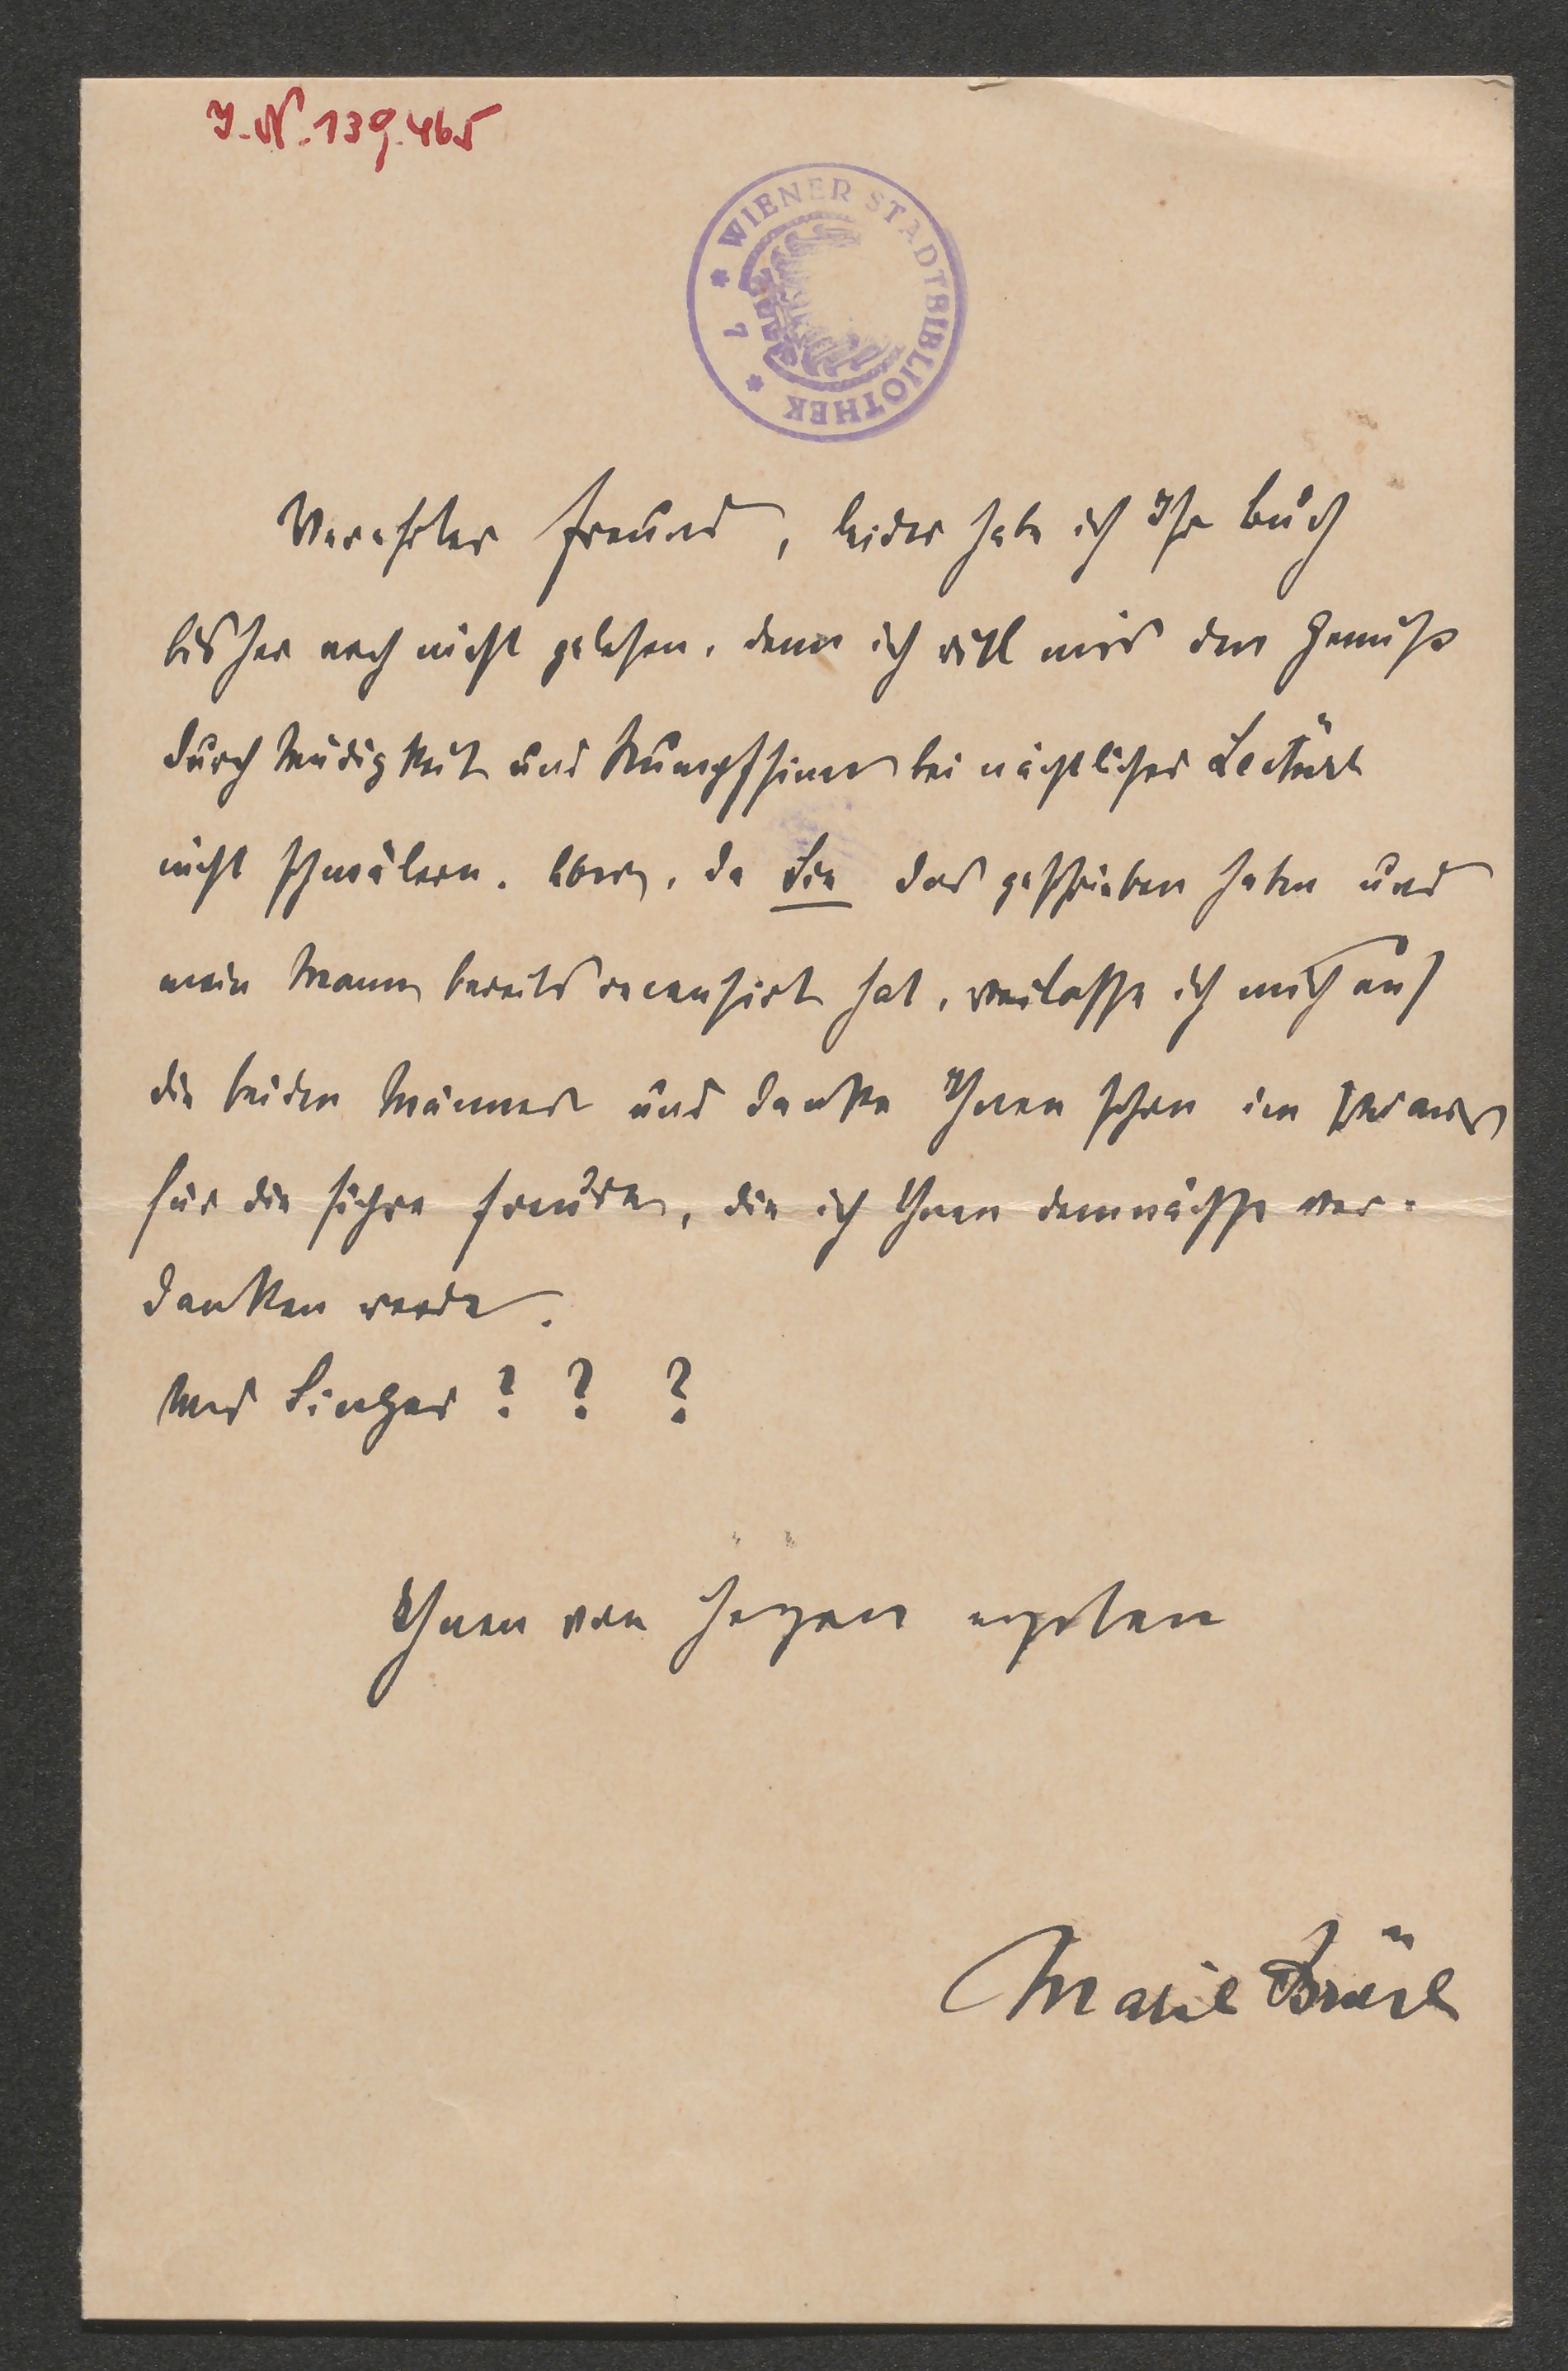 J.N. 139.465
WIENER STADTBIBLIOTHEK
7
Verehrter Freund, leider habe ich Ihr Buch
bisher noch nicht gelesen, denn ich will mir den Genuß
durch Müdigkeit und Stumpfsinn bei nächtlicher Lectüre
nicht schmälern. Aber, da Sie das geschrieben haben und
mein Mann bereits recensirt hat, verlasse ich mich auf
die beiden Männer und danke Ihnen schon im voraus
für die sichre Freude, die ich Ihnen demnächst ver-
danken werde.
Und Singer? ? ?
Ihnen von Herzen ergeben
Marie